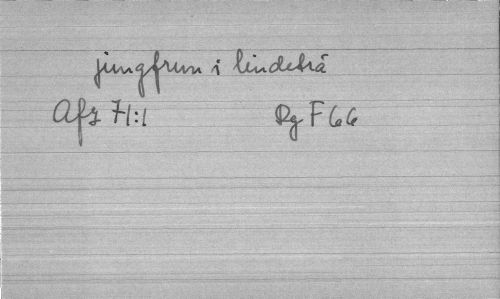 jungfrun i lindeträ
Afz 71:1 Rg F 66